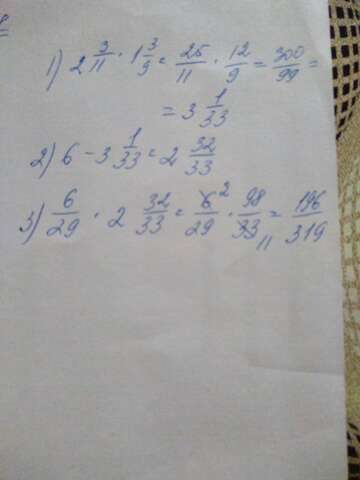 1) 2 3/11 · 1 3/9 = 25/11 · 12/9 = 300/99 =
= 3 1/33
2) 6 - 3 1/33 = 2 32/33
3) 6/29 · 2 32/33 = 6 2/29 · 98/33 11 = 196/319